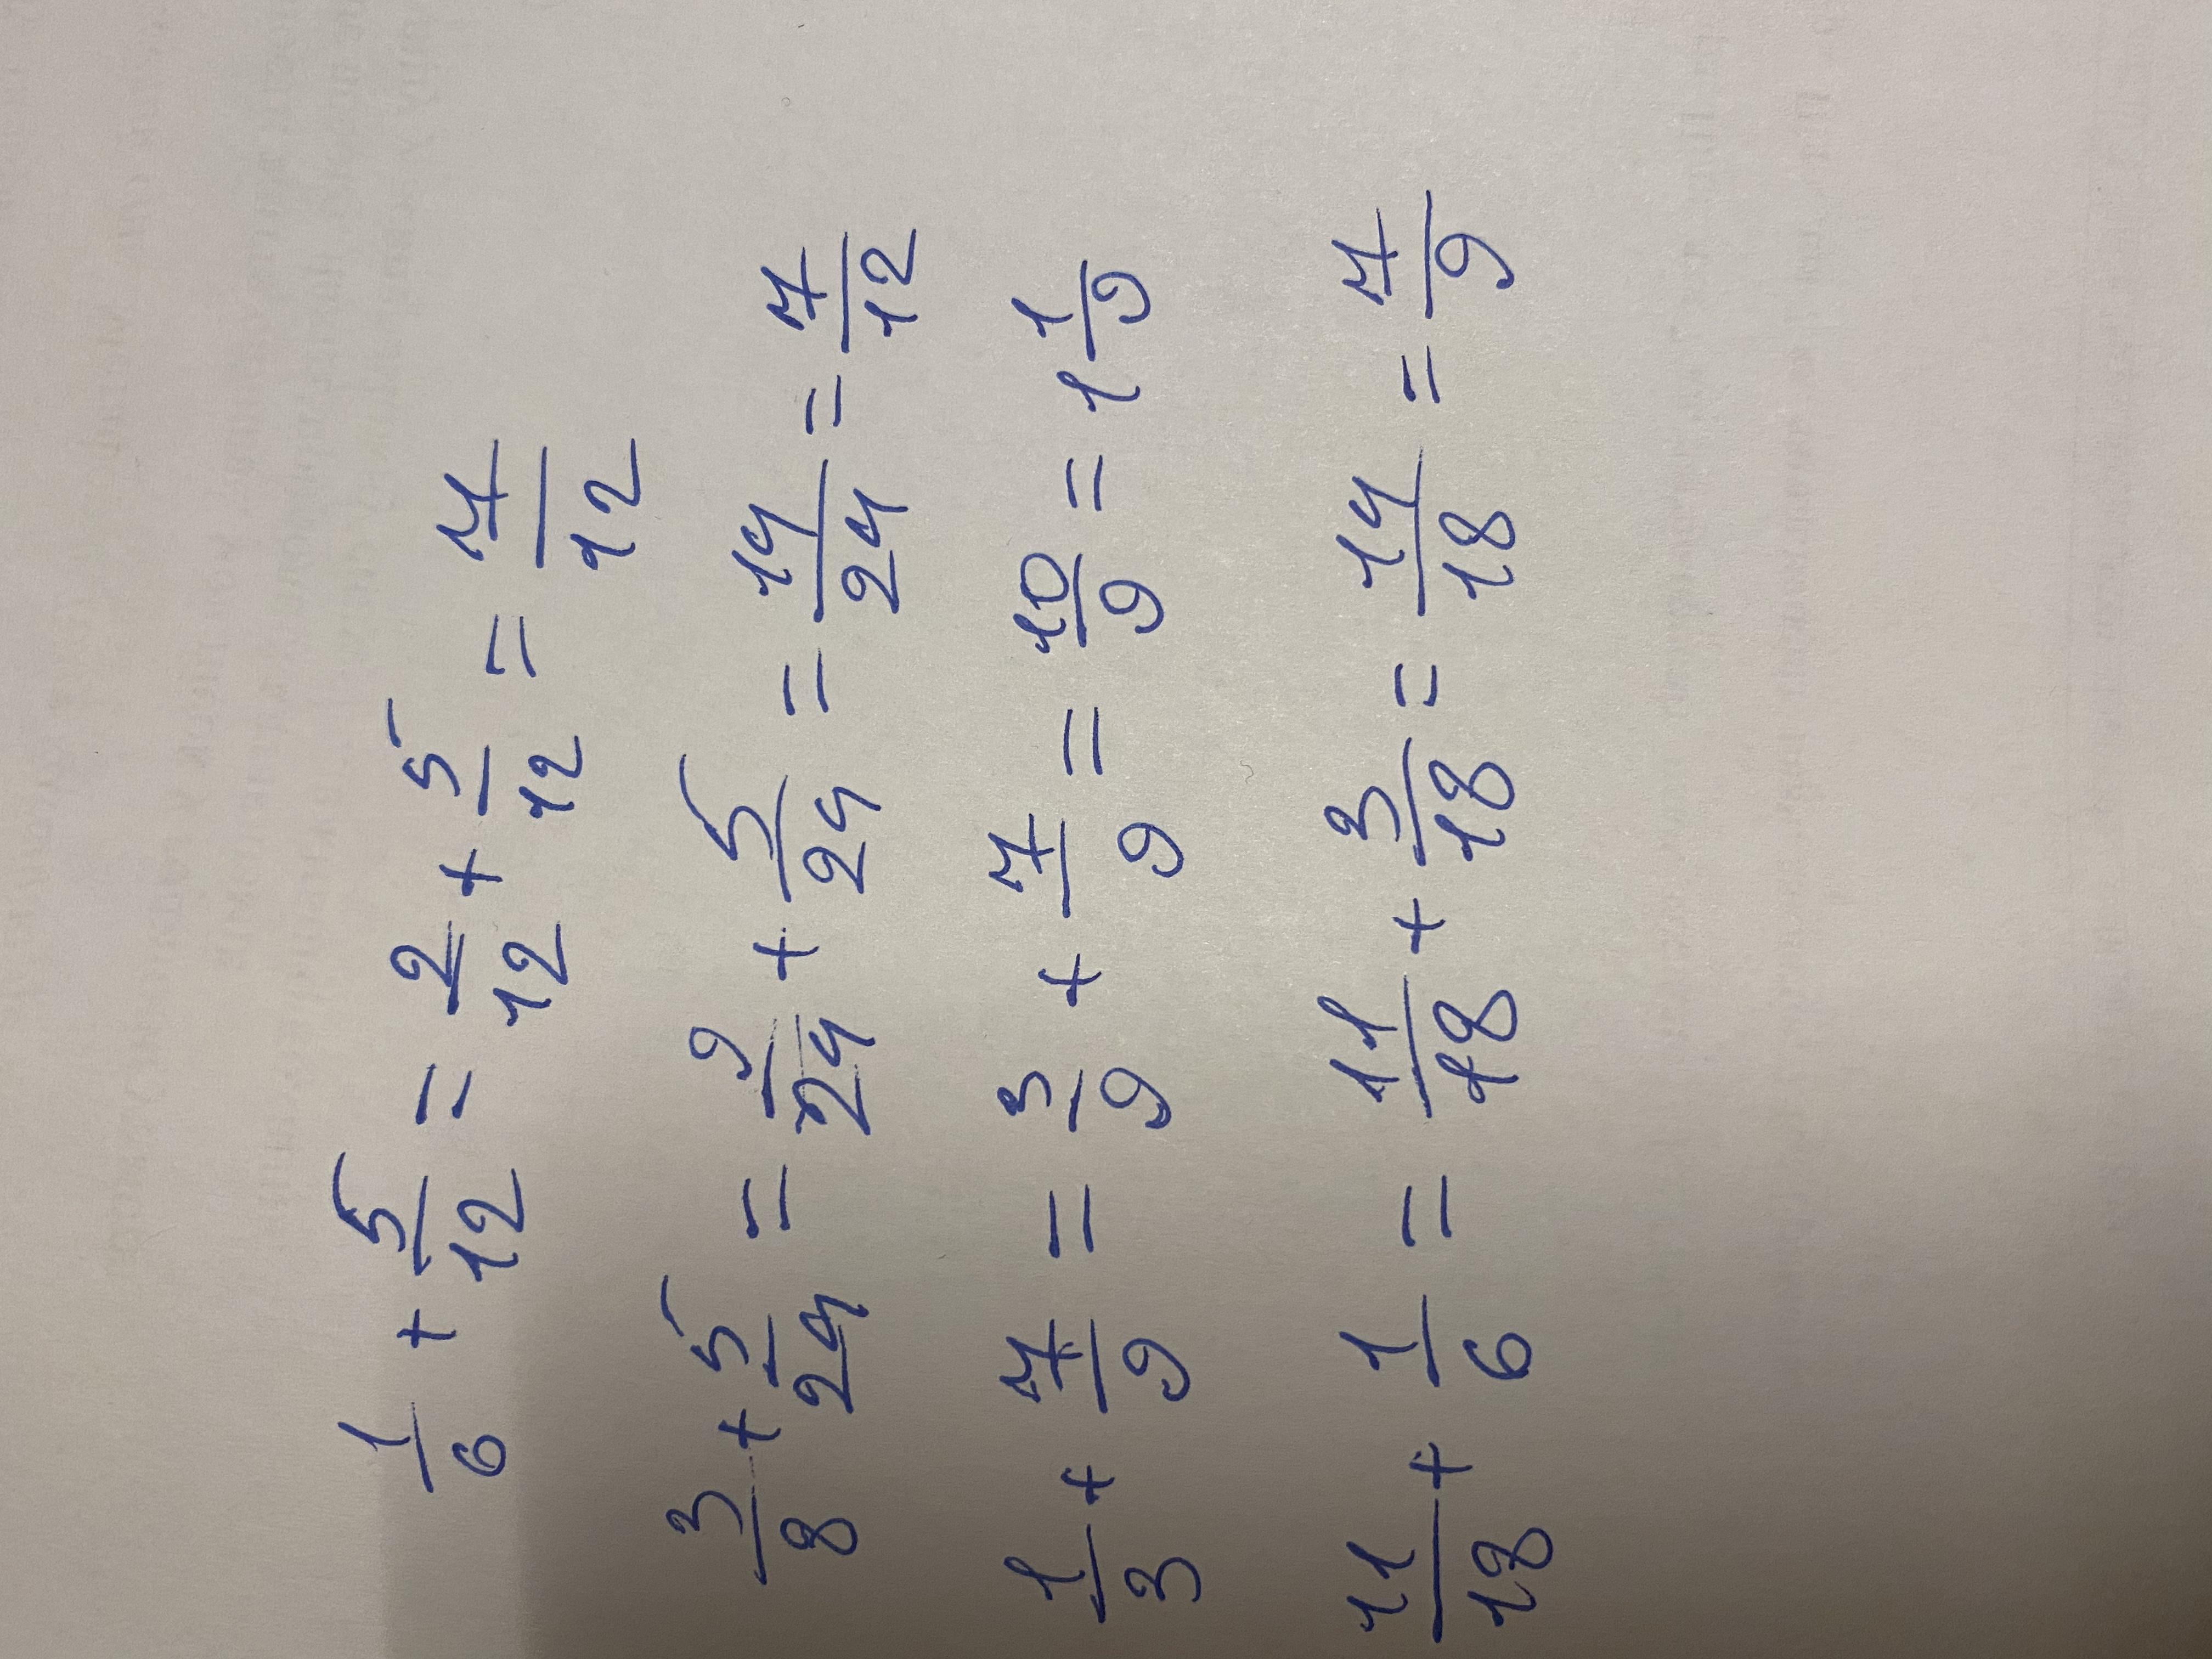 1/6 + 5/12 = 2/12 + 5/12 = 7/12
3/8 + 5/24 = 9/24 + 5/24 = 14/24 = 7/12
1/3 + 7/9 = 3/9 + 7/9 = 10/9 = 1 1/9
11/18 + 1/6 = 11/18 + 3/18 = 14/18 = 7/9